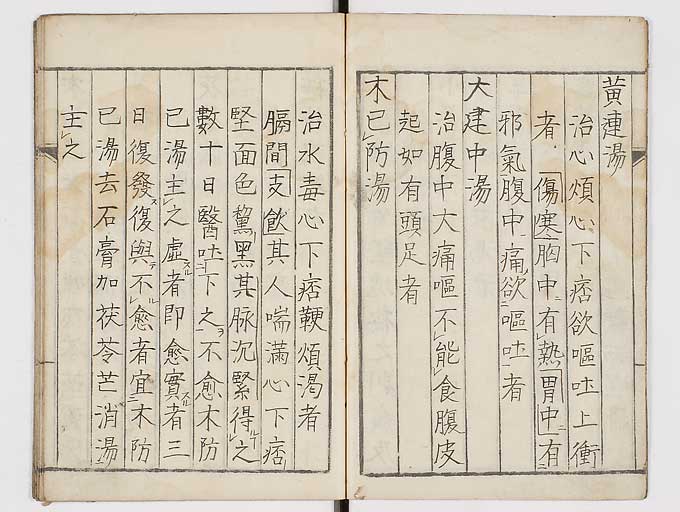 黄連湯
治心煩心下痞欲嘔吐上衝
者「傷寒胸中有熱胃中有
邪氣腹中痛欲嘔吐者
大建中湯
治腹中大痛嘔不能食腹皮
起如有頭足者
木已防湯
治水毒心下痞鞕煩渴者
膈間支飲其人喘滿心下痞
堅面色黧黑其脉沉緊得之
數十日醫吐下之不愈木防
已湯主之虛者即愈實者三
日復發復與不愈者宜木防
已湯去石膏加茯苓芒消湯
主之